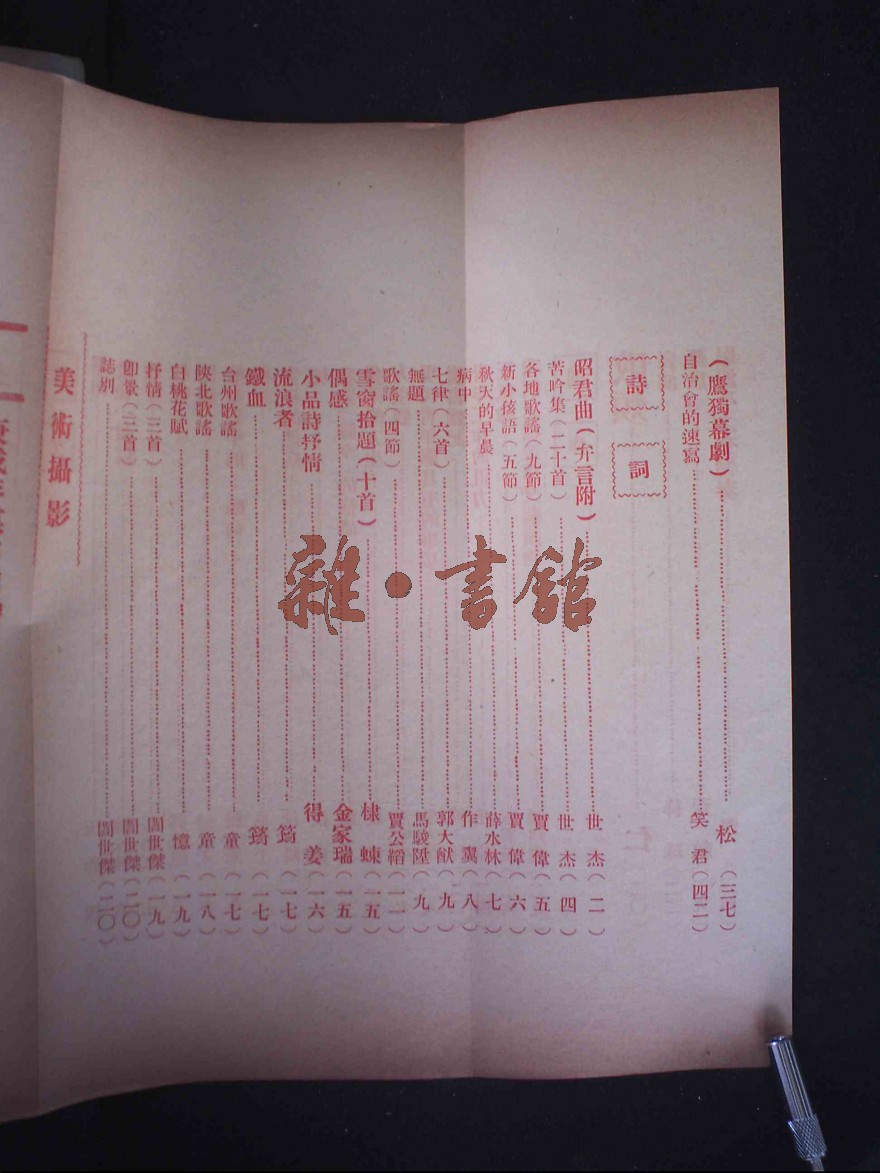 （鷹獨幕劇）……松（三七）
自治會的速寫……笑君（四二）
詩詞
昭君曲（弁言附）……世杰（二）
苦吟集（二十首）……世杰（四）
各地歌謠（九節）……賈偉（五）
新小孩語（五節）……賈偉（六）
秋天的早晨……薛水林（七）
病中……作翼（八）
七律（六首）……郭大猷（九）
無題……馬駿陞（九）
歌謠（四節）……賈公韜（一一）
雪窗拾題（十首）……棣蝀（一五）
偶感……金家瑞（一五）
小品詩抒情……得姜（一六）
流浪者……筠（一七）
鐵血……（一七）
台州歌謠……童（一七）
陝北歌謠……童（一八）
白桃花賦……憶（一九）
抒情（三首）……閻世傑（一九）
即景（三首）……閻世傑（二〇）
誌別……閻世傑（二〇）
美術攝影
雜·書館